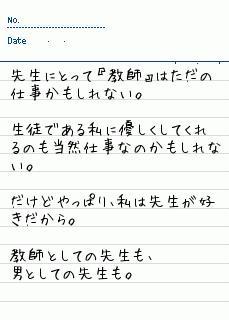 No.
Date . .
先生にとって『教師』はただの
仕事かもしれない。
生徒である私に優しくしてくれ
るのも当然仕事なのかもしれな
い。
だけどやっぱり、私は先生が好
きだから。
教師としての先生も、
男としての先生も。